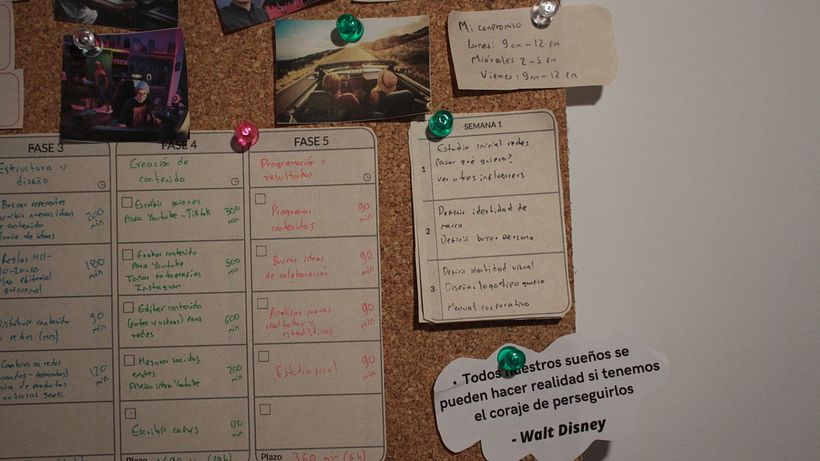 Mi compromiso
Lunes: 9 am - 12 pm
Miércoles 2 - 5 pm
Viernes: 9am - 12 pm
FASE 3
Estructura y
diseño
Buscar referentes
nuevas ideas
de contenido
de ideas
200
min
min
contenido
redes
90
min
en redes
de productos
120
min
FASE 4
Creación de
contenido
Escribir guiones
para Youtube - Tiktok
300
min
Grabar contenido
para Youtube
Tomar fotografías
Instagram
500
min
Editar contenido
(fotos y videos) para
redes
600
min
Diseño intro Youtube
200
min
Escribir copys
120
min
Plazo
FASE 5
Programación y
resultados
Programar
contenidos
90
min
Buscar ideas
de colaboración
90
min
Analizar nuevos
resultados y
estadísticas
90
min
Estudio final
90
min
Plazo 360 min (6 h)
SEMANA 1
1
Estudio inicial redes
qué quiero?
Ver otros influencers
2
Definir identidad de
marca
Definir buyer persona
3
Definir identidad visual
Diseñar logo tipografía
Manual corporativo
• Todos nuestros sueños se
pueden hacer realidad si tenemos
el coraje de perseguirlos
- Walt Disney